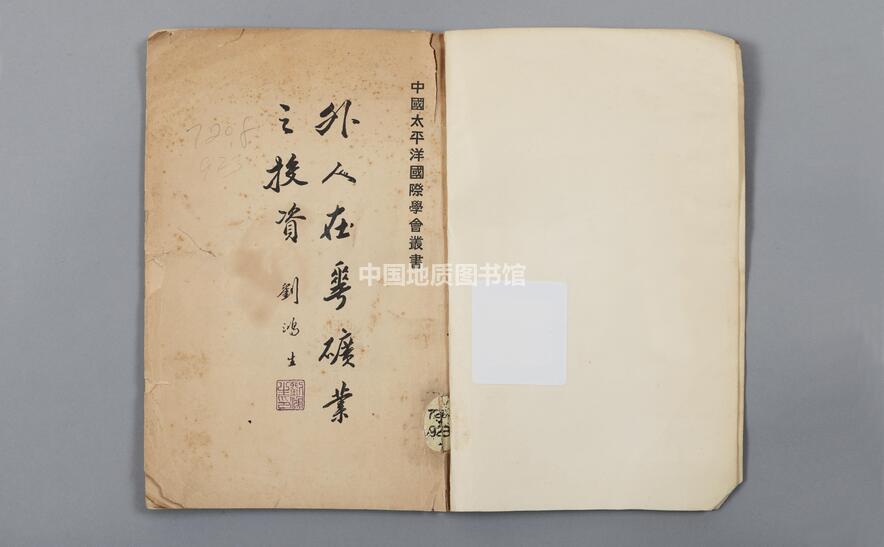 中國太平洋國際學會叢書
外人在華礦業
之投資
劉鴻生
劉鴻生印
7298
923
中国地质图书馆
923